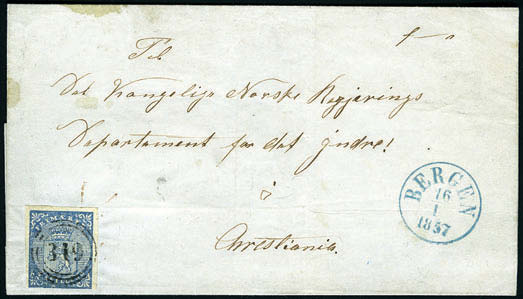 f—a
Til
Det Kongelige Norske Regjerings
Departement for det Indre!
i
Christiania.
BERGEN
16
1
1857
FRIMÆRKE
319